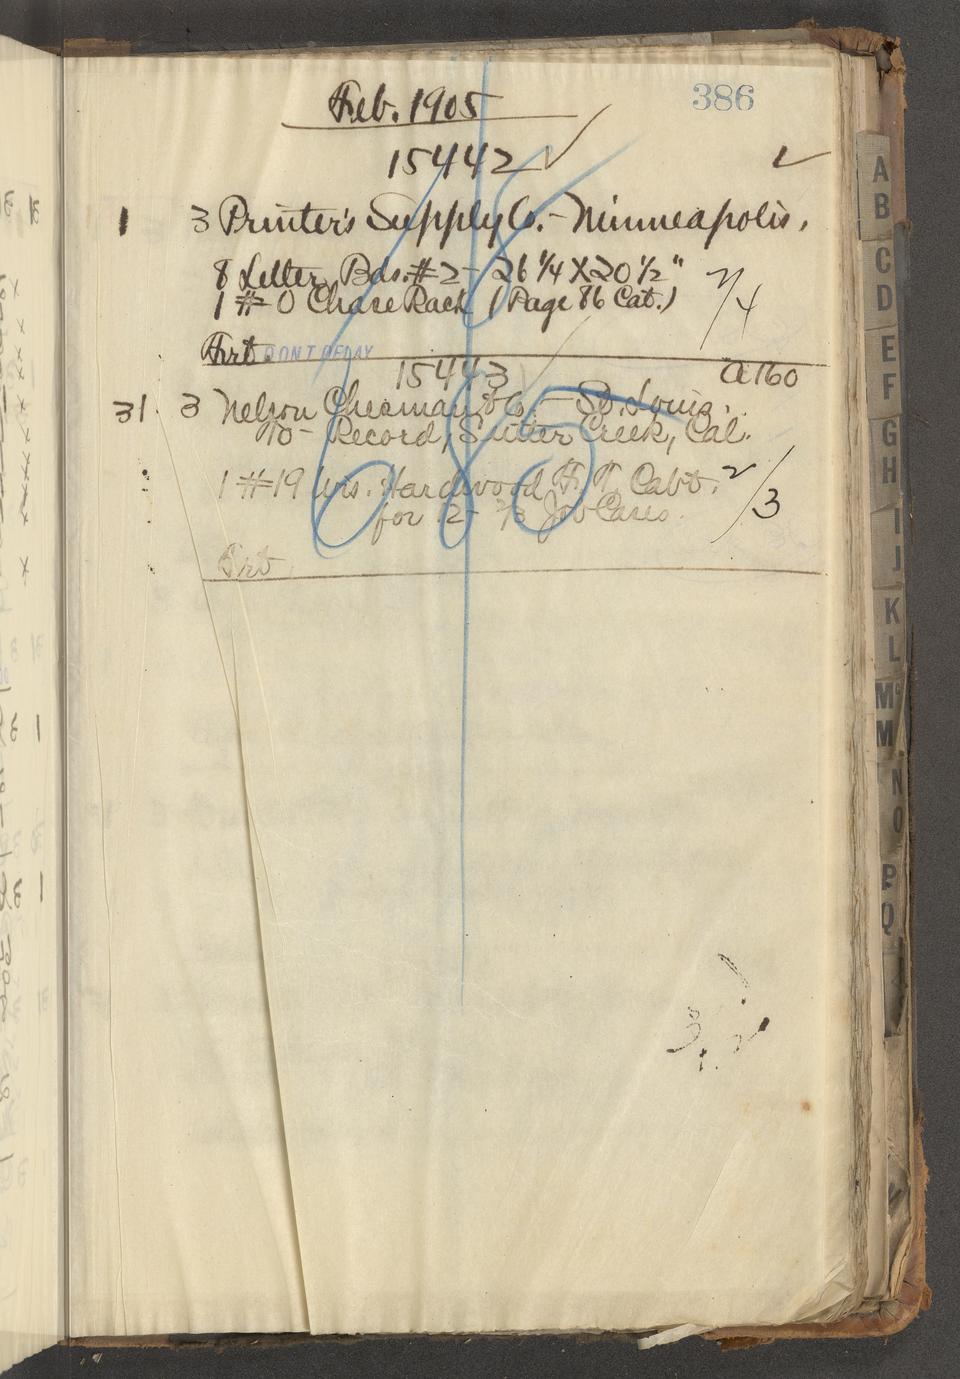 386
Feb. 1905
15442
1 3 Printer's Supply Co. - Minneapolis,
8 Letter Bds. #2 - 26 1/4 X 20 1/2"
1 #0 Chase Rack (Page 86 Cat.) 2/4
Frt. DON'T DELAY
15443 a160
31 3 Nelson Chesman & Co. - St. Louis.
To - Record, Sutter Creek, Cal.
1 #19 Hardwood Cabt. 2/3
for 12 - 2/3 Job Cases
Frt
A
B
C
D
E
F
G
H
I
J
K
L
Mc
M
N
O
P
Q